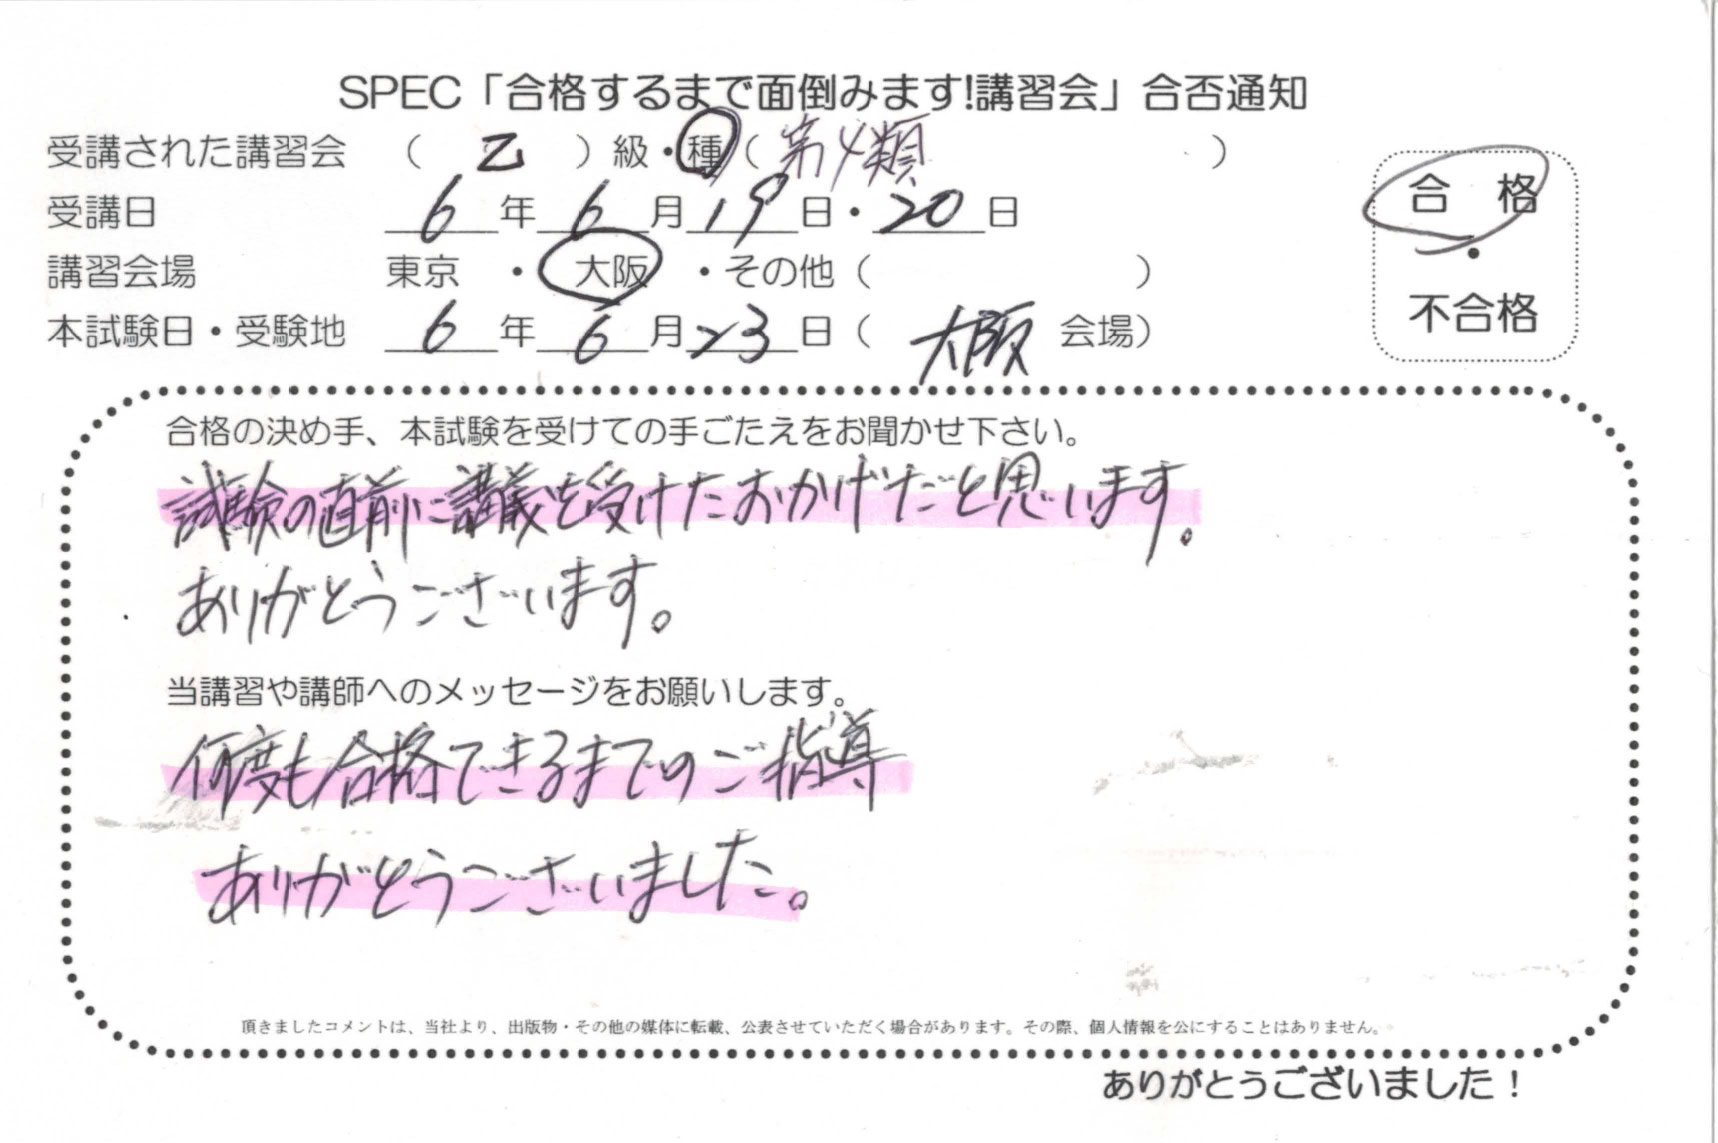 SPEC「合格するまで面倒みます!講習会」合否通知
受講された講習会 （ 乙 ）級・種（第4類 ）
受講日 6年6月19日・20日
講習会場 東京 ・ 大阪 ・その他（ ）
本試験日・受験地 6年6月23日（ 大阪 会場）
合 格
・
不合格
合格の決め手、本試験を受けての手ごたえをお聞かせ下さい。
試験の直前に講義を受けたおかげだと思います。
ありがとうございます。
当講習や講師へのメッセージをお願いします。
何度も合格できるまでのご指導
ありがとうございました。
頂きましたコメントは、当社より、出版物・その他の媒体に転載、公表させていただく場合があります。その際、個人情報を公にすることはありません。
ありがとうございました！